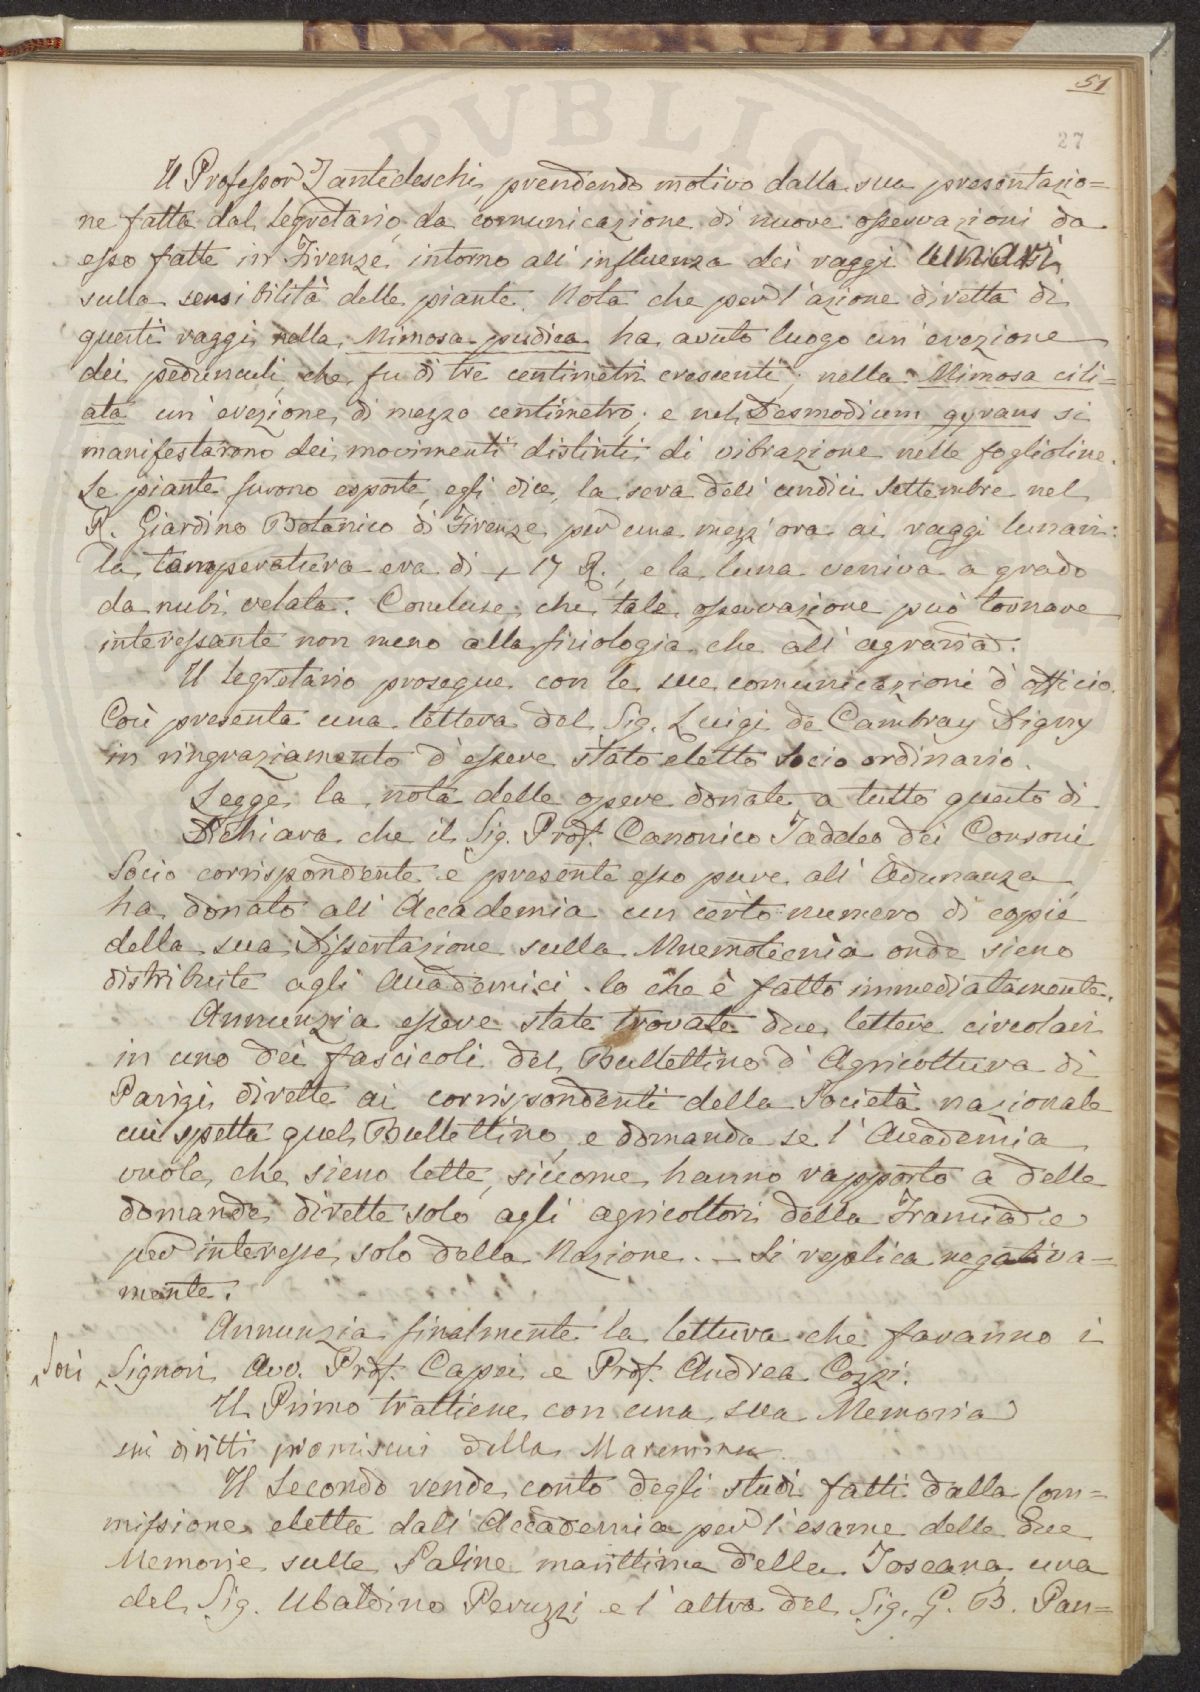 51
27
PVBLIC
Il Professor Zantedeschi, prendendo motivo dalla sua presentazio=
ne fatta dal Segretario, da comunicazione di nuove osservazioni da
esso fatte in Firenze intorno all' influenza dei raggi lunari
sulla sensibilità delle piante. Nota che per l'azione diretta di
questi raggi nella Mimosa pudica ha avuto luogo un' erezione
dei peduncoli, che fu di tre centimetri crescenti; nella Mimosa cili=
ata un' erezione di mezzo centimetro; e nel Desmodium gyrans si
manifestarono dei movimenti distinti di vibrazione nelle foglioline.
Le piante furono esposte, egli dice, la sera dell' undici Settembre nel
R. Giardino Botanico di Firenze per una mezz' ora ai raggi lunari:
la temperatura era di + 17 R., e la luna veniva a grado
da nubi velata. Concluse, che tale osservazione può tornare
interessante non meno alla fisiologia che all' agraria.
Il Segretario prosegue con le sue comunicazioni d' officio.
Così presenta una lettera del Sig. Luigi de Cambray Digny
in ringraziamento d' essere stato eletto Socio ordinario.
Legge la nota delle opere donate a tutto questo dì
Dichiara che il Sig. Prof. Canonico Taddeo dei Consoni
Socio corrispondente e presente esso pure all' Adunanza
ha donato all' Accademia un certo numero di copie
della sua Dissertazione sulla Mnemotecnia onde sieno
distribuite agli Accademici. lo che è fatto immediatamente.
Annunzia essere state trovate due lettere circolari
in uno dei fascicoli del Bullettino d' Agricoltura di
Parigi dirette ai corrispondenti della Società nazionale
cui spetta quel Bullettino, e domanda se l' Accademia
vuole, che sieno lette, siccome hanno rapporto a delle
domande dirette solo agli agricoltori della Francia e
per interesse solo della Nazione. – Si replica negativa=
mente.
Annunzia finalmente la lettura che faranno i
Soci Signori Avv. Prof. Capei e Prof. Andrea Cozzi.
Il Primo trattiene con una sua Memoria
sui diritti promiscui della Maremma
Il Secondo rende conto degli studi fatti dalla Com=
missione eletta dall' Accademia per l'esame delle due
Memorie sulle Saline marittime della Toscana, una
del Sig. Ubaldino Peruzzi e l' altra del Sig. G. B. Pan=